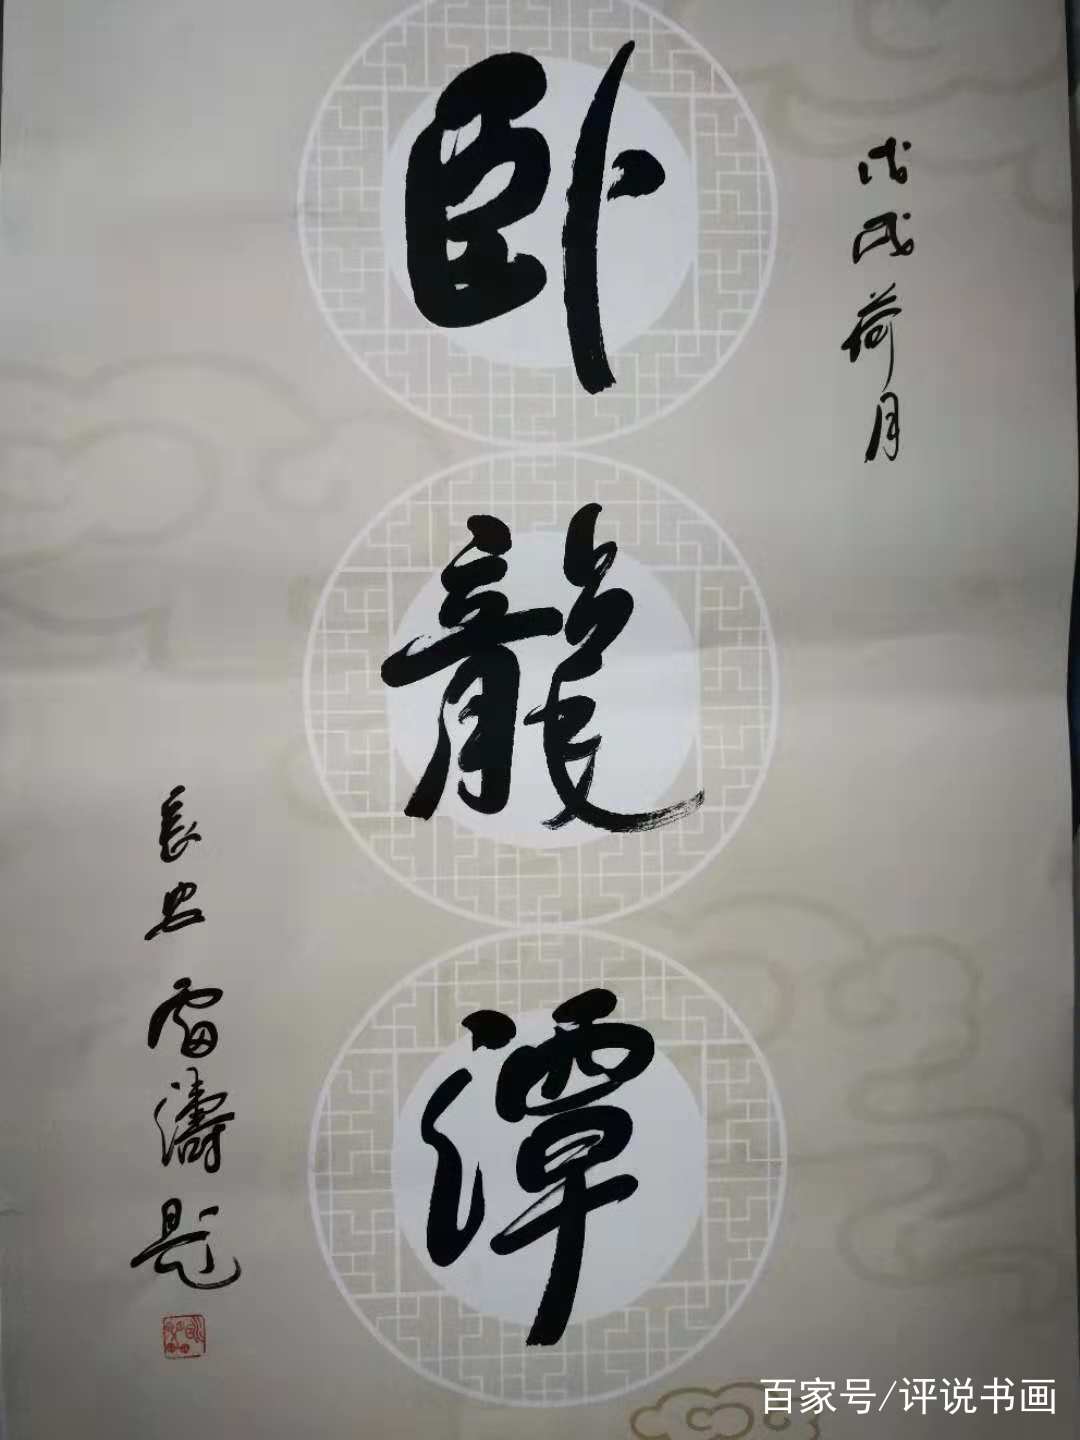 戊戌荷月
卧龍潭
長安雷濤題
百家号/评说书画